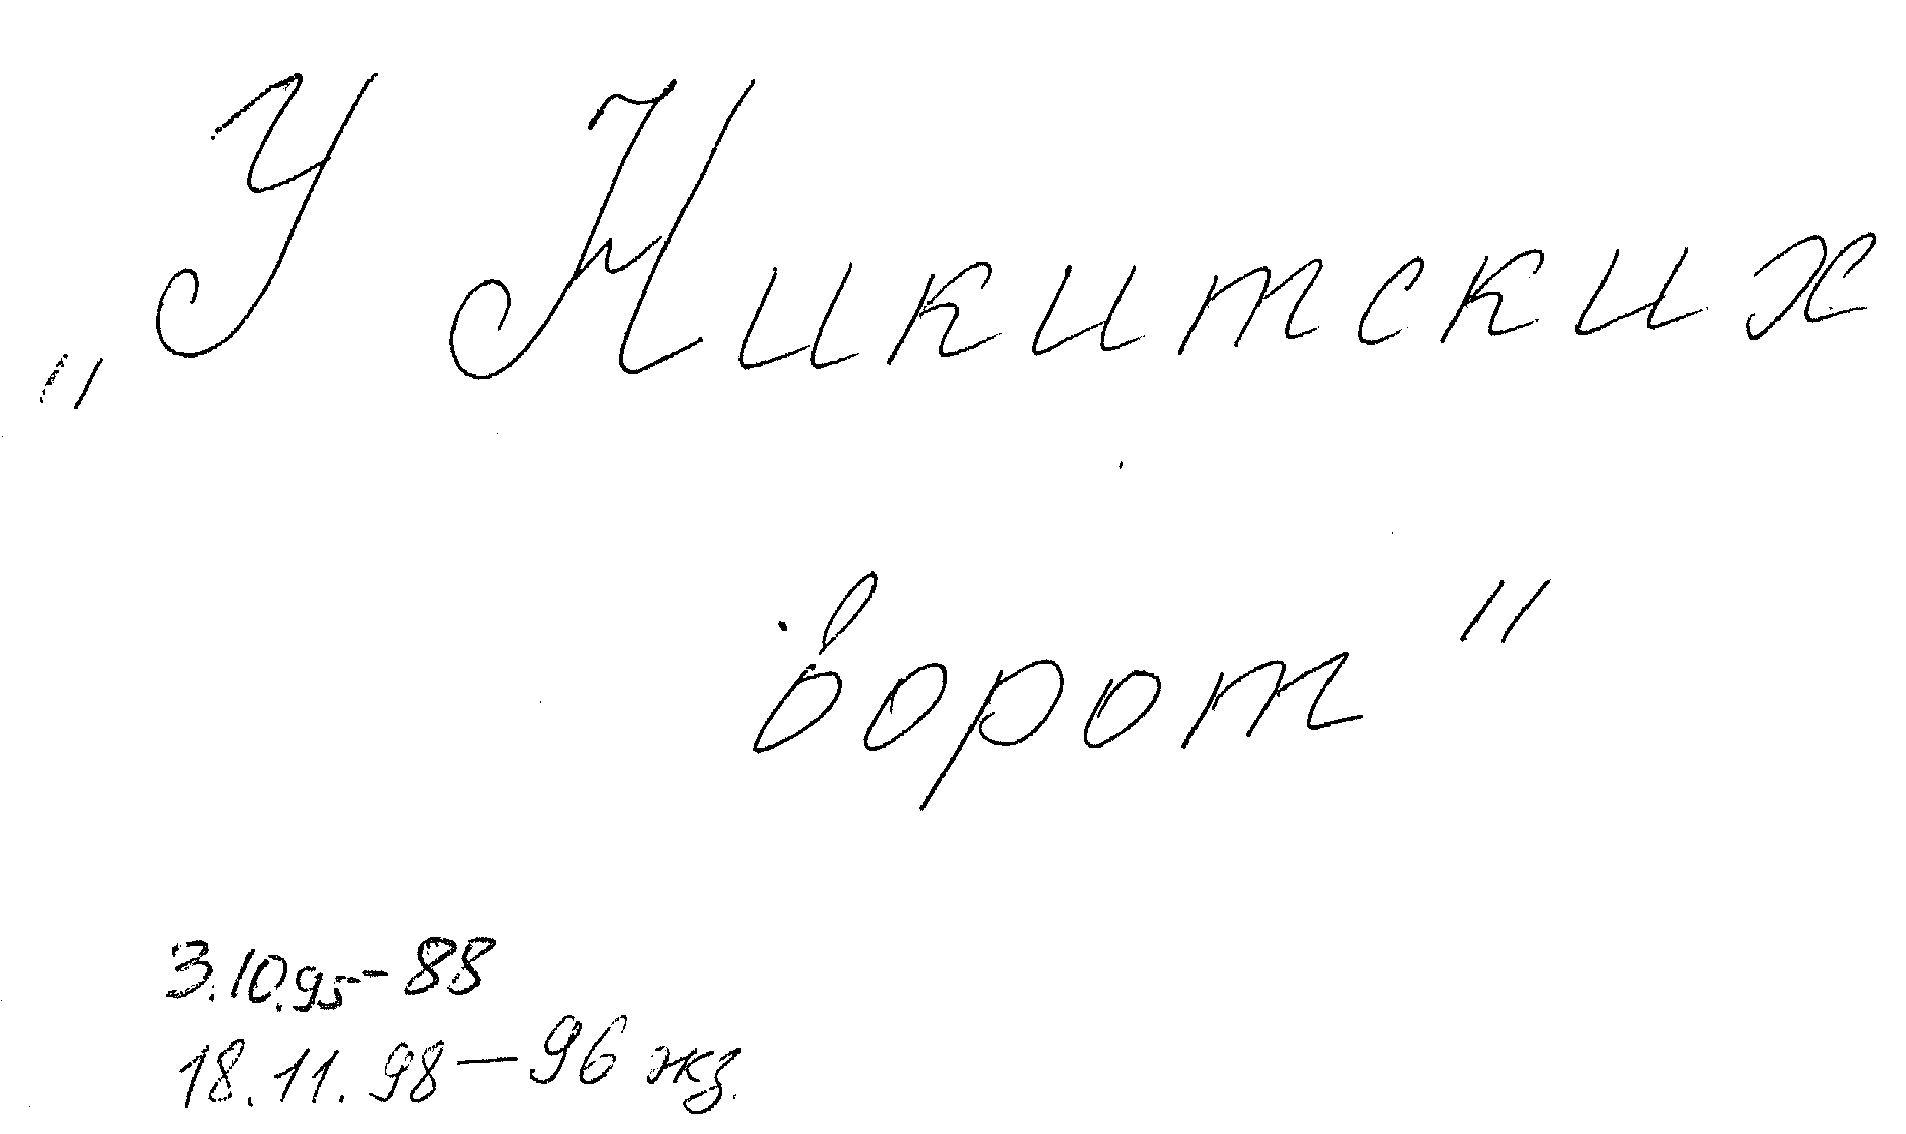 „У Никитских
ворот"
3.10.95-88
18.11.98-96 экз.